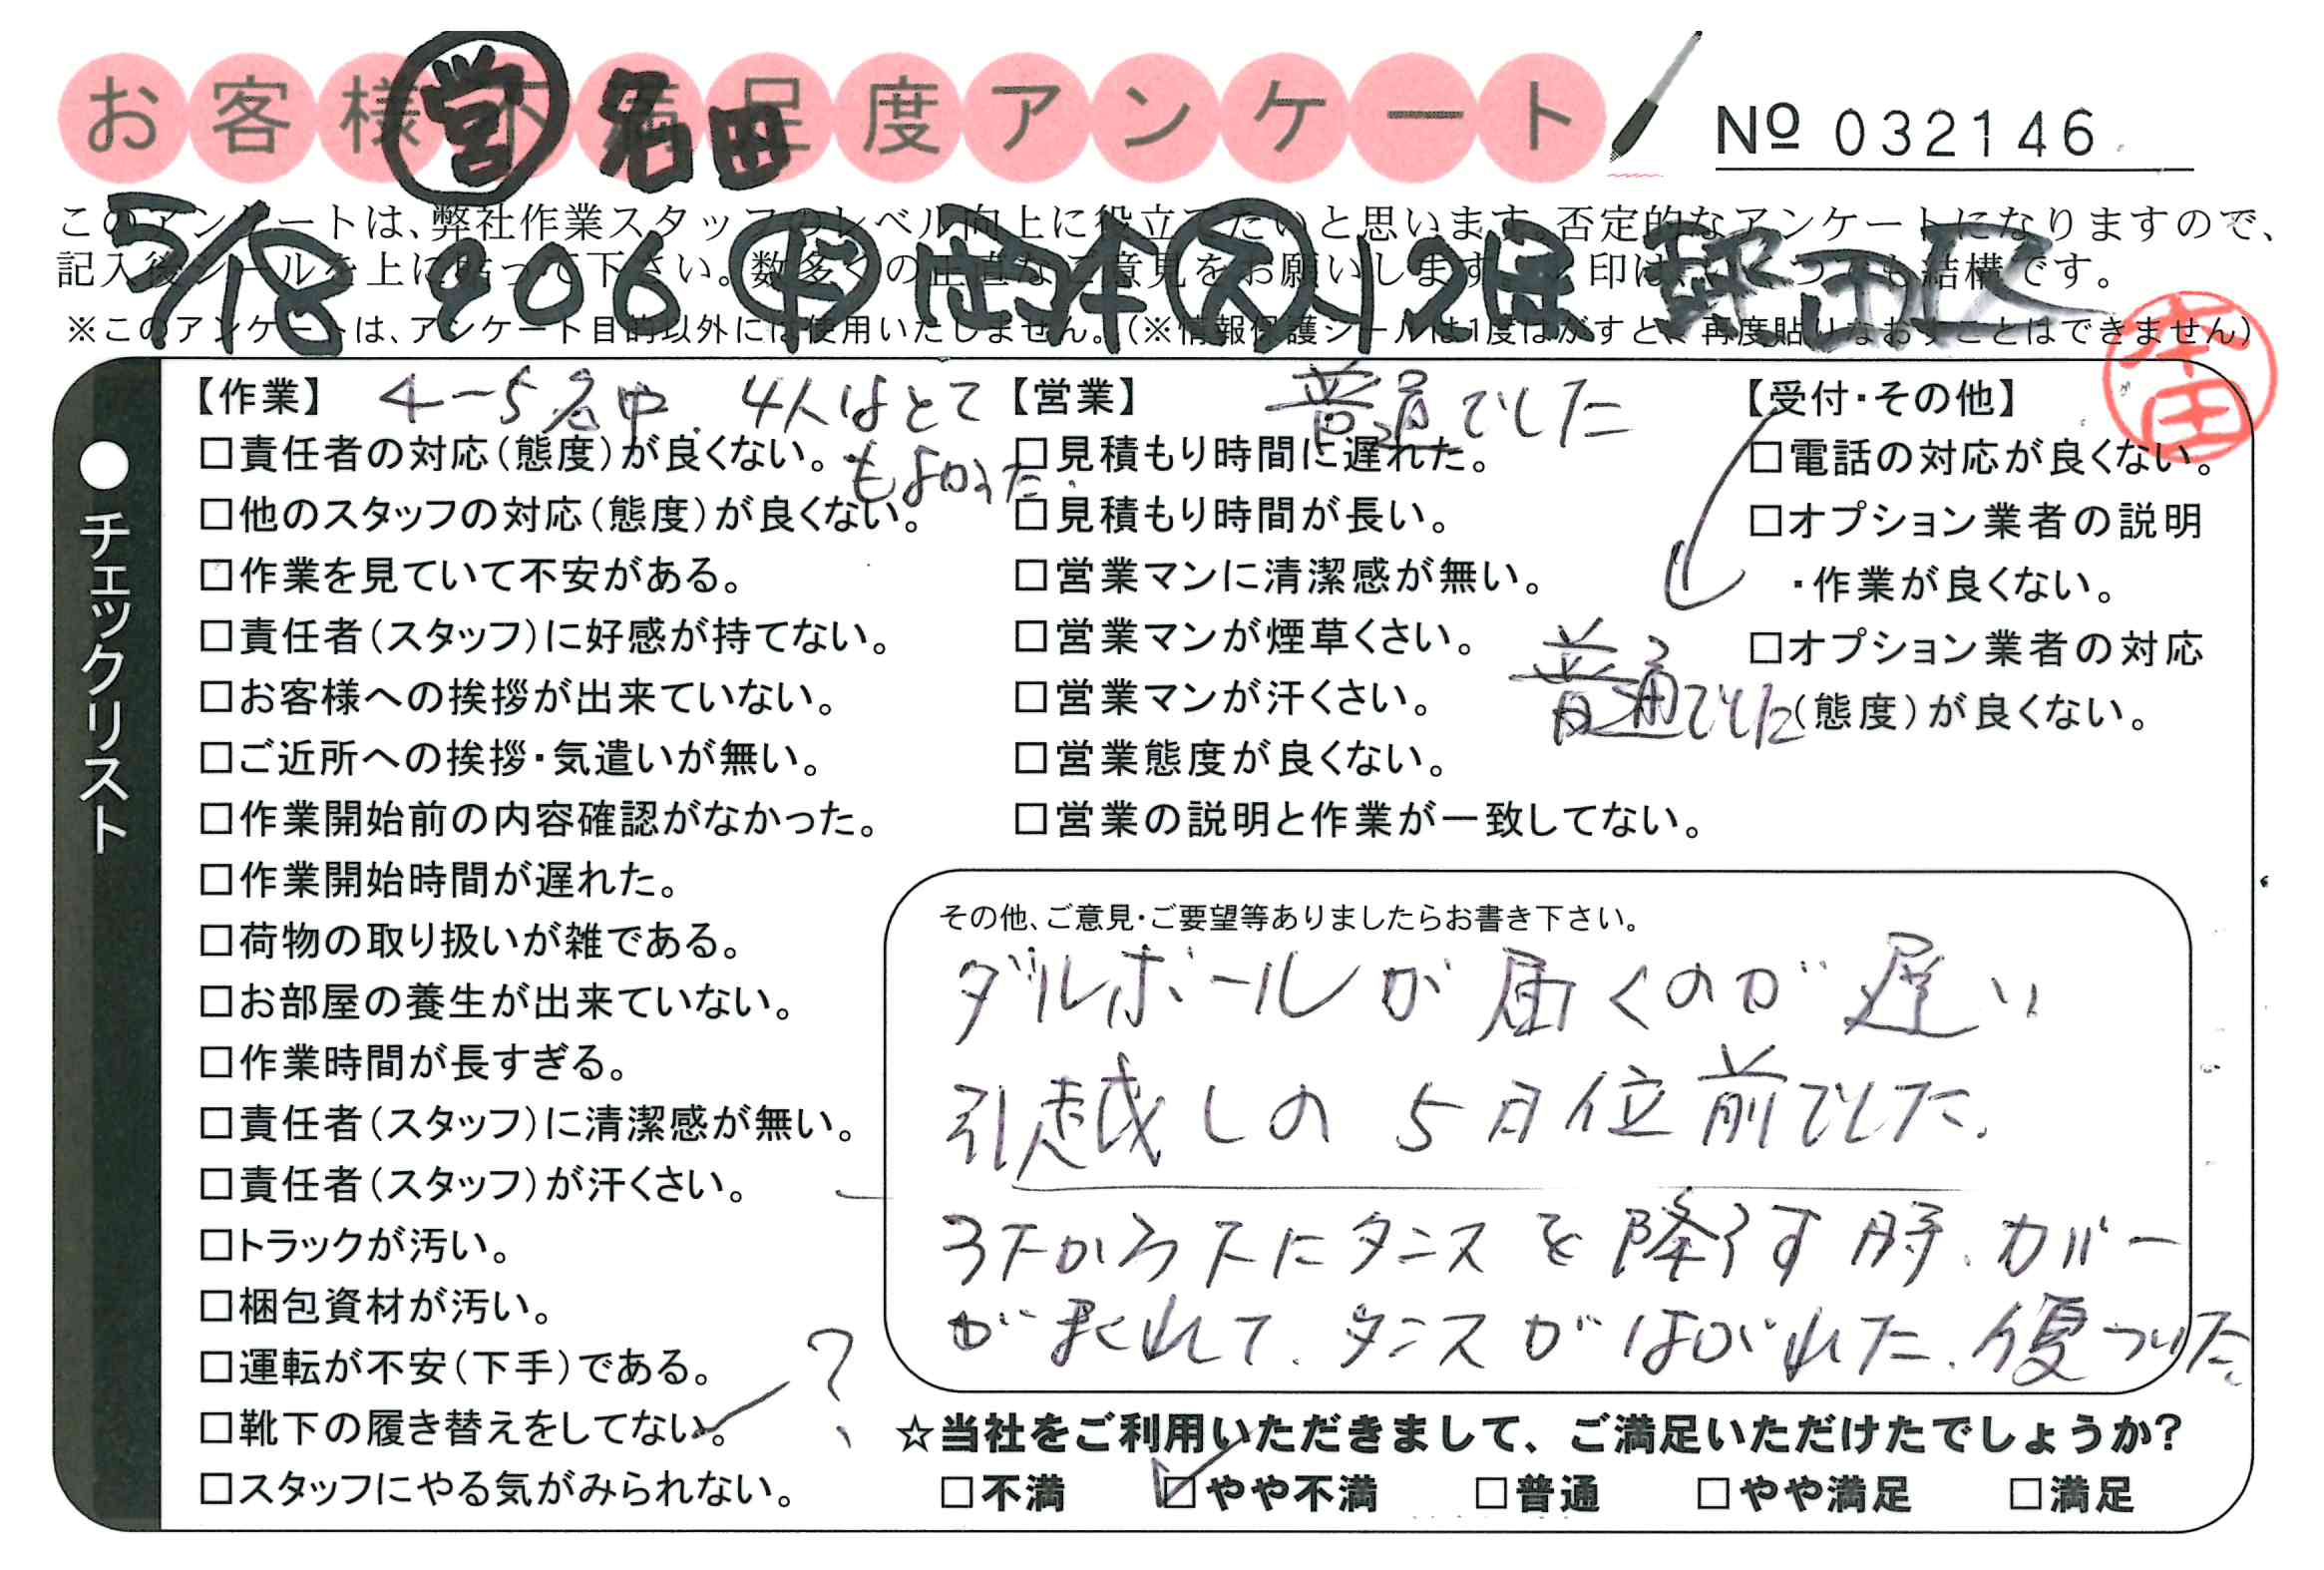 お客様不満足度アンケート
営 名田
№ 032146
このアンケートは、弊社作業スタッフのレベル向上に役立てたいと思います。否定的なアンケートになりますので、
記入後シールを上に貼って下さい。数多くの正直なご意見をお願いします。
5/18 906 岡本 12
※このアンケートは、アンケート目的以外には使用いたしません。(※情報保護シールは1度はがすと、再度貼りなおすことはできません)
本田
●チェックリスト
【作業】 4-5名中、4人はとて
もよかった。
□責任者の対応(態度)が良くない。
□他のスタッフの対応(態度)が良くない。
□作業を見ていて不安がある。
□責任者(スタッフ)に好感が持てない。
□お客様への挨拶が出来ていない。
□ご近所への挨拶・気遣いが無い。
□作業開始前の内容確認がなかった。
□作業開始時間が遅れた。
□荷物の取り扱いが雑である。
□お部屋の養生が出来ていない。
□作業時間が長すぎる。
□責任者(スタッフ)に清潔感が無い。
□責任者(スタッフ)が汗くさい。
□トラックが汚い。
□梱包資材が汚い。
□運転が不安(下手)である。
□靴下の履き替えをしてない。 ?
□スタッフにやる気がみられない。
【営業】 普通でした
□見積もり時間に遅れた。
□見積もり時間が長い。
□営業マンに清潔感が無い。
□営業マンが煙草くさい。
□営業マンが汗くさい。
□営業態度が良くない。
□営業の説明と作業が一致してない。
【受付・その他】
□電話の対応が良くない。
□オプション業者の説明
・作業が良くない。
□オプション業者の対応
(態度)が良くない。
普通でした
その他、ご意見・ご要望等ありましたらお書き下さい。
ダルボールが届くのが遅い
引越しの5日位前でした.
3Fから下にタンスを降ろす時、カバー
が取れて、タンスがはがれた、傷ついた
☆当社をご利用いただきまして、ご満足いただけたでしょうか?
□不満 ☑やや不満 □普通 □やや満足 □満足